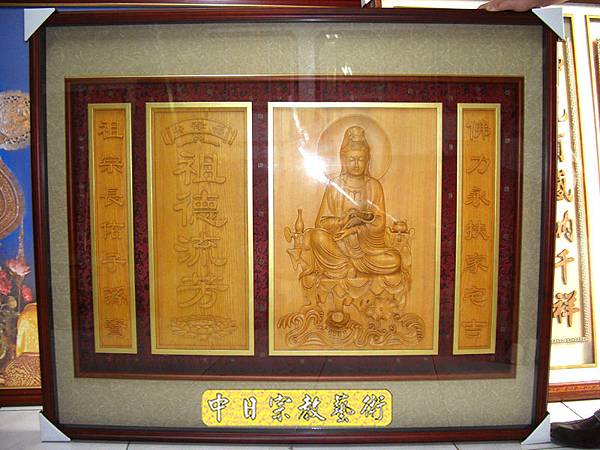 佛力永扶家宅吉
祖德流芳
祖宗長佑子孫賢
納千祥
中日宗教藝術